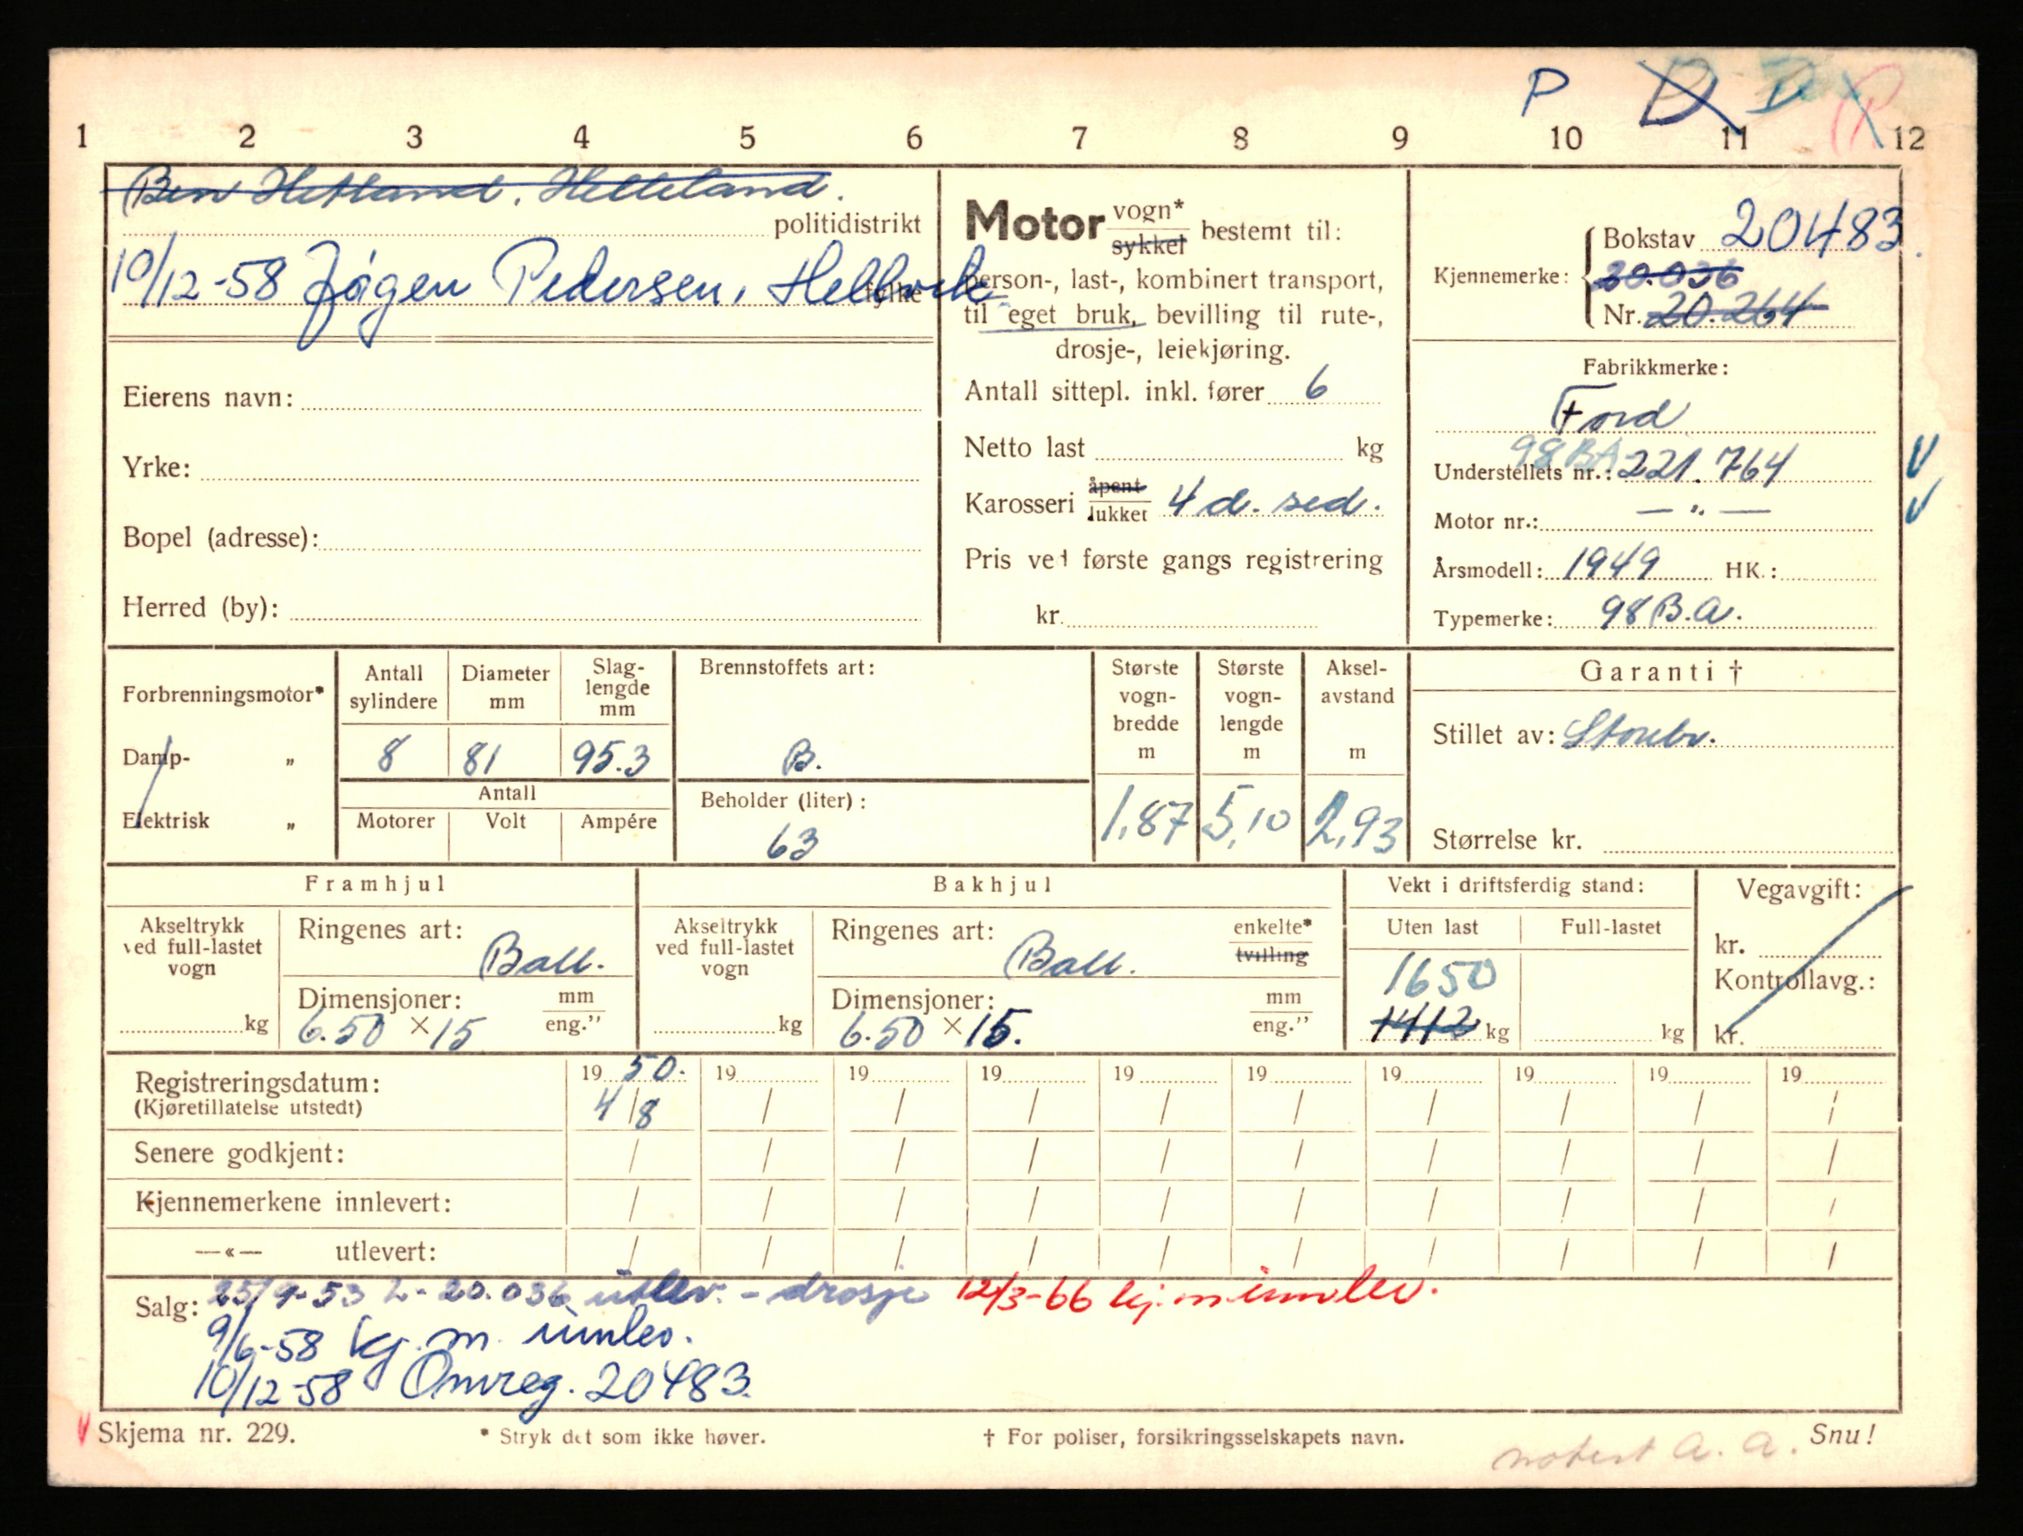 P D D P
1 2 3 4 5 6 7 8 9 10 11 12
Ben Hetland, Helleland.
politidistrikt
10/12-58 Jørgen Pedersen, Hellvik
fylke
Eierens navn:
Yrke:
Bopel (adresse):
Herred (by):
Motor vogn* sykkel bestemt til:
person-, last-, kombinert transport,
til eget bruk, bevilling til rute-,
drosje-, leiekjøring.
Antall sittepl. inkl. fører 6
Netto last kg
Karosseri åpent lukket 4 d. sed.
Pris ved første gangs registrering
kr.
Kjennemerke: Bokstav 20483
20.036
Nr. 20.264
Fabrikkmerke:
Ford
98BA
Understellets nr.: 221.764
Motor nr.: — " —
Årsmodell: 1949 HK.:
Typemerke: 98 B.A.
Forbrenningsmotor*
Damp- „
Elektrisk „
Antall sylindere Diameter mm Slaglengde mm
8 81 95.3
Antall
Motorer Volt Ampére
Brennstoffets art:
B.
Beholder (liter):
63
Største vognbredde m Største vognlengde m Akselavstand m
1,87 5,10 2,93
Garanti †
Stillet av: Storebr.
Størrelse kr.
Framhjul
Akseltrykk ved full-lastet vogn
kg
Ringenes art:
Ball.
Dimensjoner: mm eng."
6.50 × 15
Bakhjul
Akseltrykk ved full-lastet vogn
kg
Ringenes art: enkelte* tvilling
Ball.
Dimensjoner: mm eng."
6.50 × 15.
Vekt i driftsferdig stand:
Uten last Full-lastet
1650
1412 kg kg
Vegavgift:
kr.
Kontrollavg.:
kr.
Registreringsdatum: 19 50. 19 19 19 19 19 19 19 19 19
(Kjøretillatelse utstedt) 4/8 / / / / / / / / /
Senere godkjent: / / / / / / / / / /
Kjennemerkene innlevert: / / / / / / / / / /
—«— utlevert: / / / / / / / / / /
Salg: 25/9-53 L-20.036 utlev. - drosje 12/3-66 kj.m innlev.
9/6-58 kj. m. innlev.
10/12-58 Omreg. 20483.
V Skjema nr. 229. * Stryk det som ikke høver. † For poliser, forsikringsselskapets navn. Snu!
notert A. A.